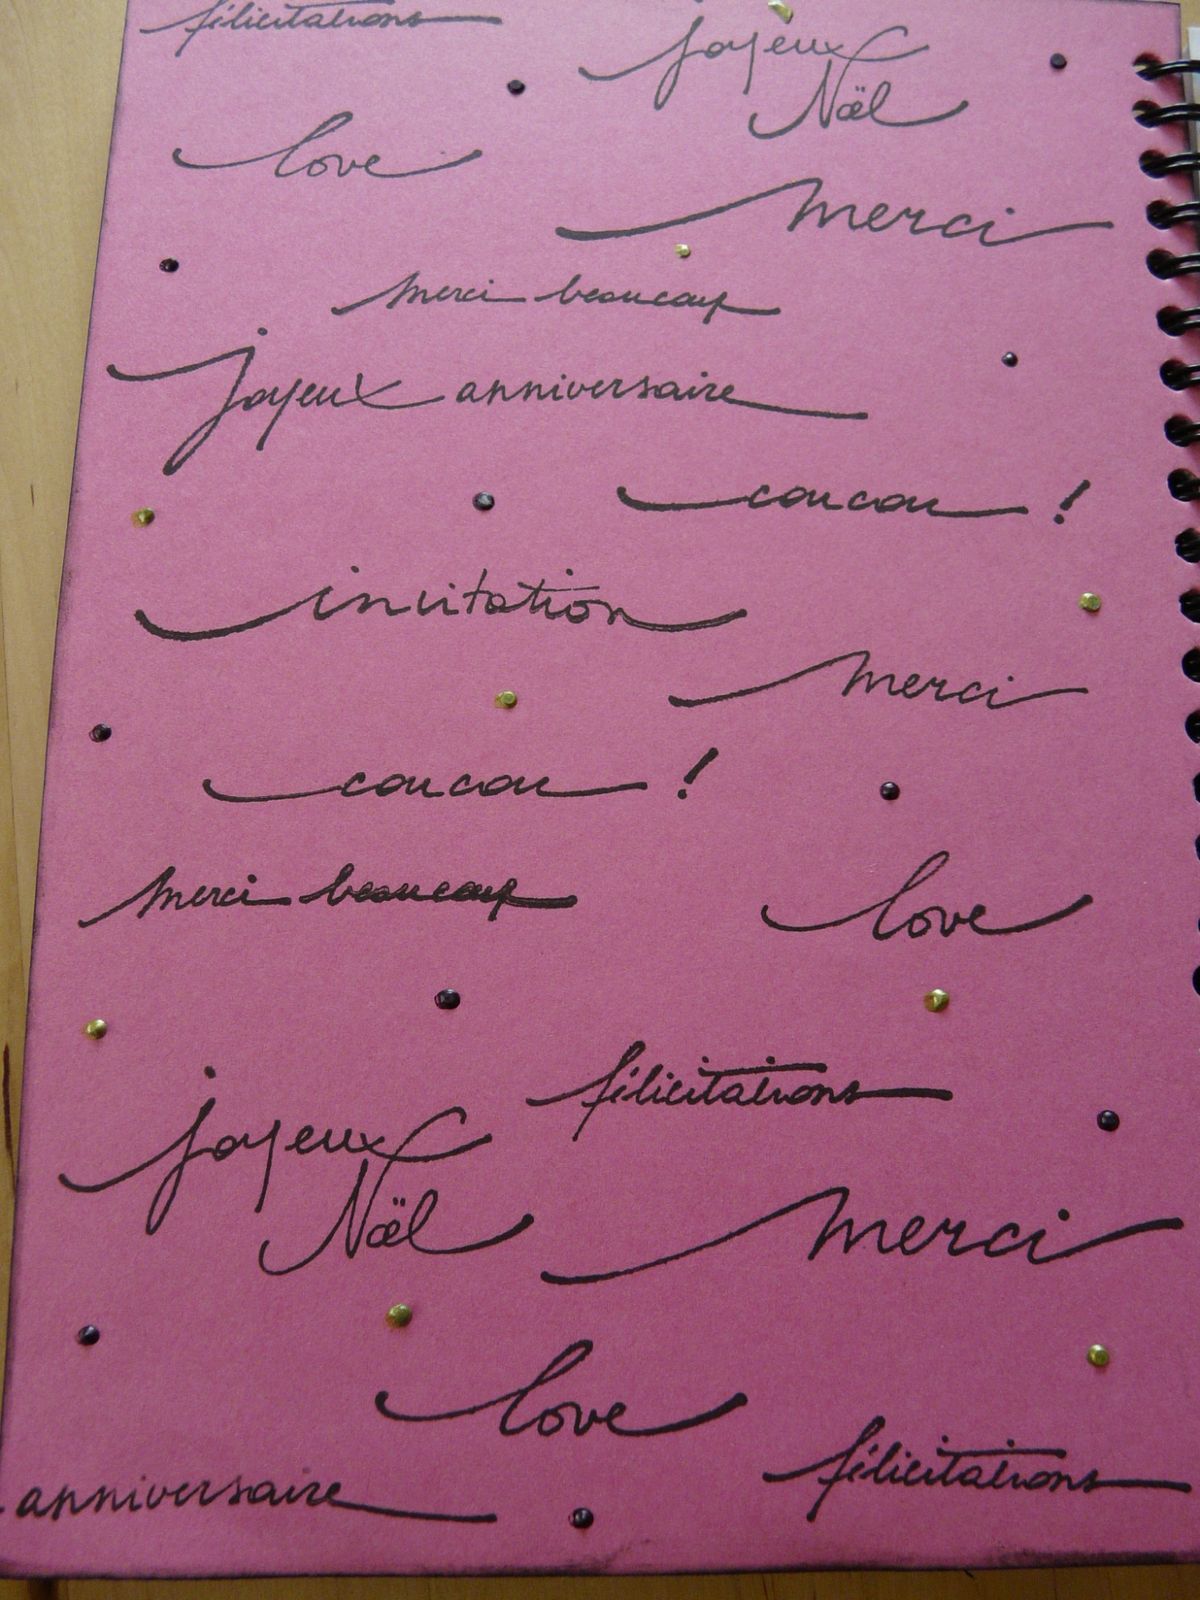 félicitations
joyeux
Noël
love
merci
merci beaucoup
joyeux anniversaire
coucou !
invitation
merci
coucou !
merci beaucoup
love
félicitations
joyeux
Noël
merci
love
félicitations
anniversaire